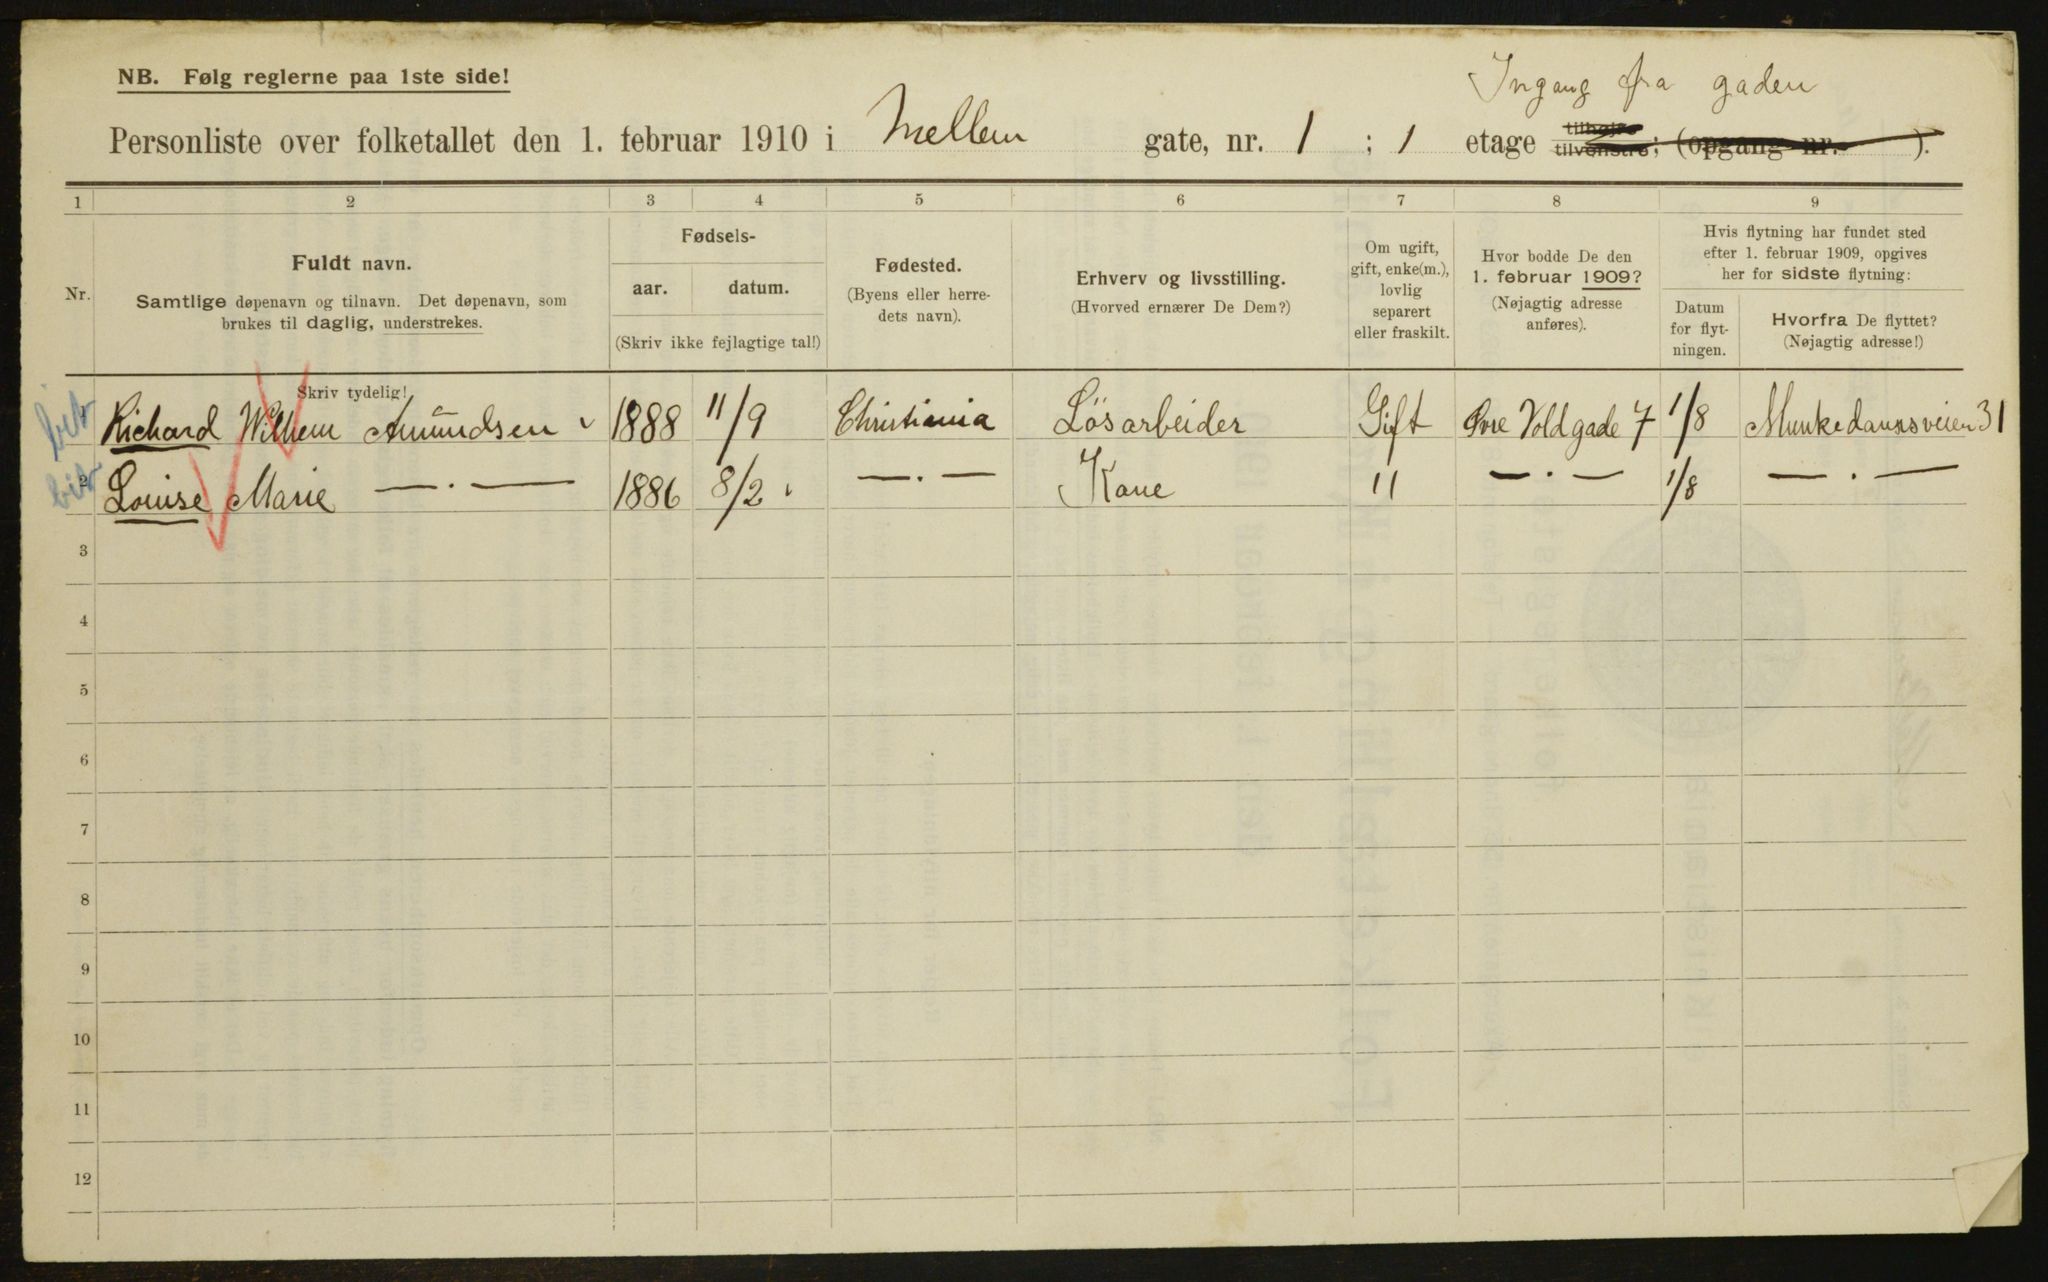 NB. Følg reglerne paa 1ste side!
Ingang fra gaden
Personliste over folketallet den 1. februar 1910 i Mellem gate, nr. 1 ; 1 etage tilhøjre tilvenstre; (opgang nr. ).
1 2 3 4 5 6 7 8 9
Nr.
Fuldt navn.
Samtlige døpenavn og tilnavn. Det døpenavn, som
brukes til daglig, understrekes.
Fødsels-
aar. datum.
(Skriv ikke fejlagtige tal!)
Fødested.
(Byens eller herre-
dets navn).
Erhverv og livsstilling.
(Hvorved ernærer De Dem?)
Om ugift,
gift, enke(m.),
lovlig
separert
eller fraskilt.
Hvor bodde De den
1. februar 1909?
(Nøjagtig adresse
anføres).
Hvis flytning har fundet sted
efter 1. februar 1909, opgives
her for sidste flytning:
Datum
for flyt-
ningen.
Hvorfra De flyttet?
(Nøjagtig adresse!)
Skriv tydelig!
1 Richard Wilhem Amundsen 1888 11/9 Christiania Lösarbeider Gift Øvre Voldgade 7 1/8 Munkedamsveien 31
2 Louise Marie — . — 1886 8/2 — . — Kone 11 — . — 1/8 — . —
3
4
5
6
7
8
9
10
11
12